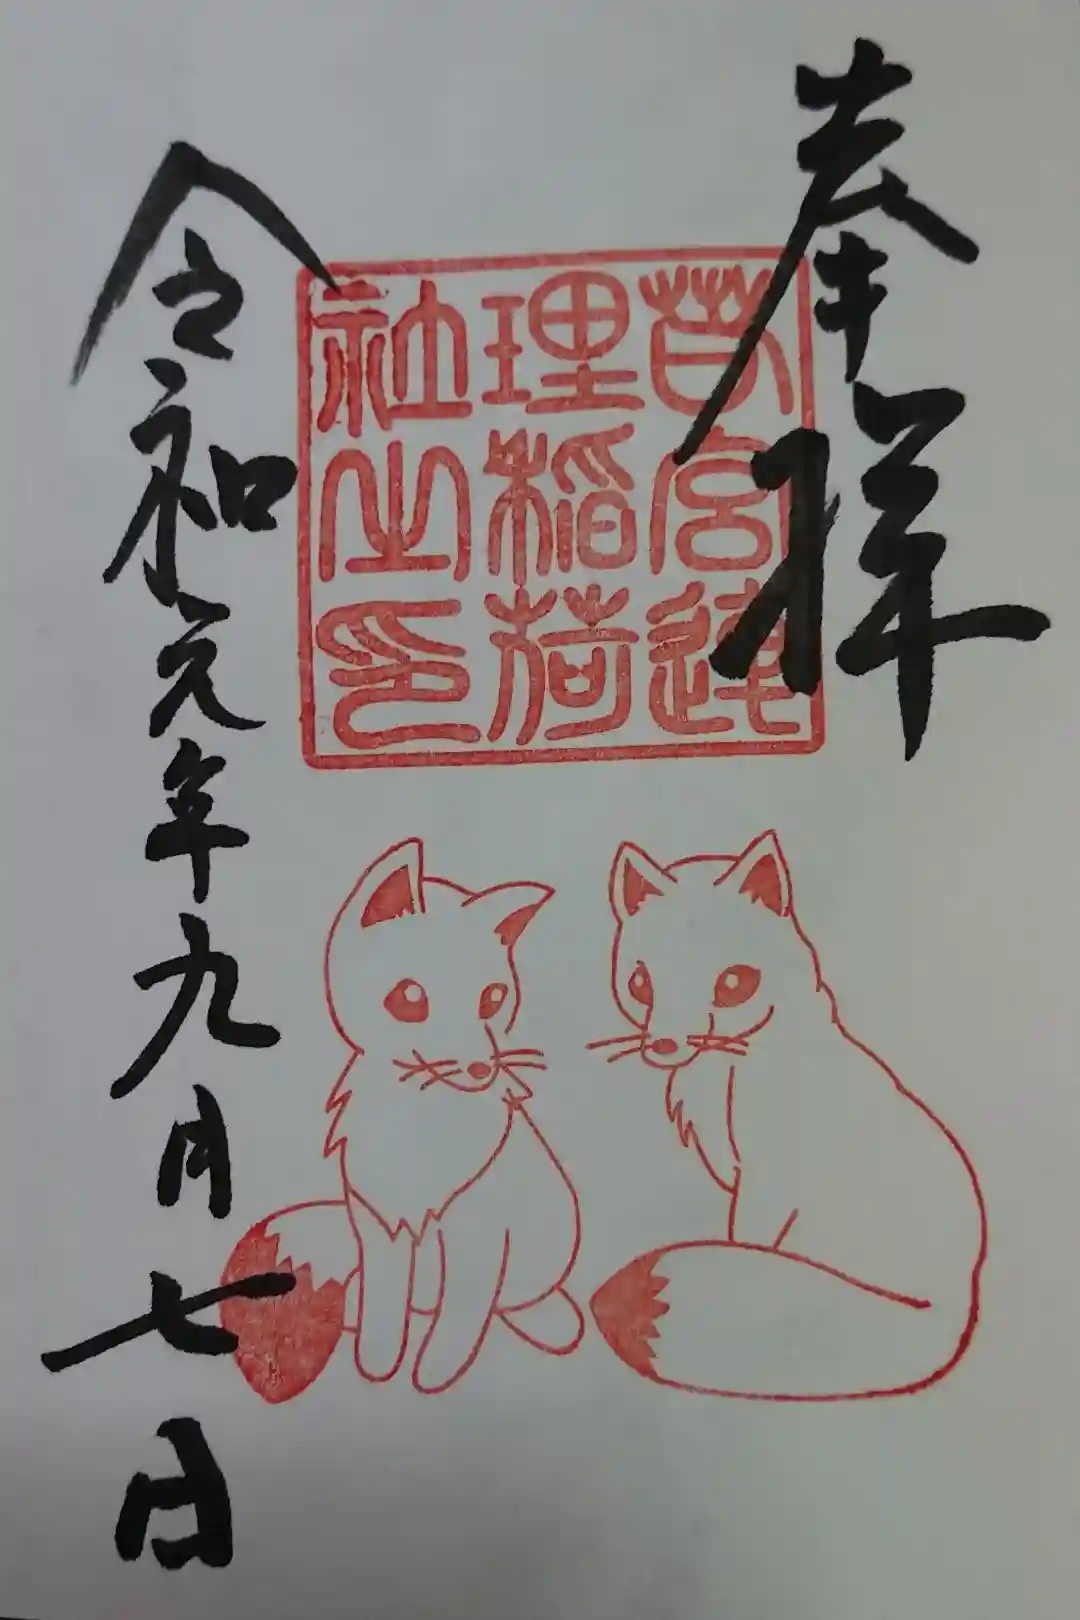 奉拝
若宮連
理稲荷
社之印
令和元年九月七日